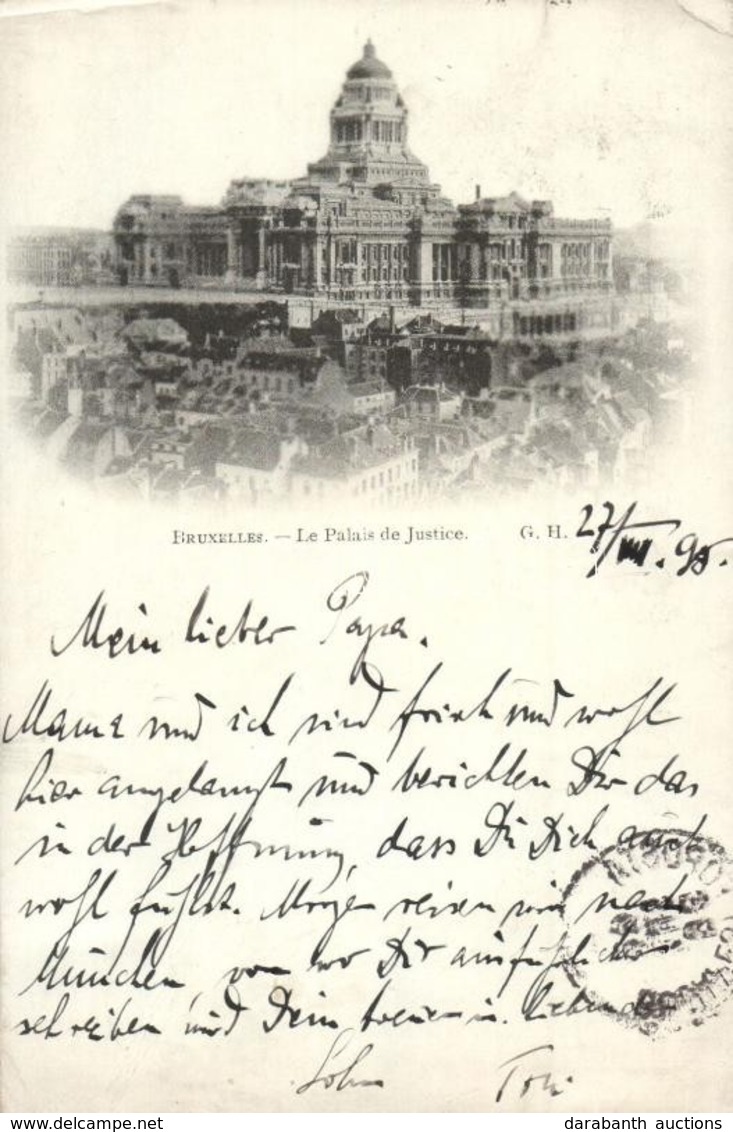 BRUXELLES. — Le Palais de Justice. G. H. 27/VII. 95.
Mein lieber Papa.
Mama und ich sind frisch und wohl
hier angelangt und berichten Dir das
in der Hoffnung, dass Du Dich auch
wohl fühlst. Morgen reisen wir nach
München, von wo Dir ausführlicher
schreiben wird Dein treuer u. liebender
Sohn Toni
darabanth auctions